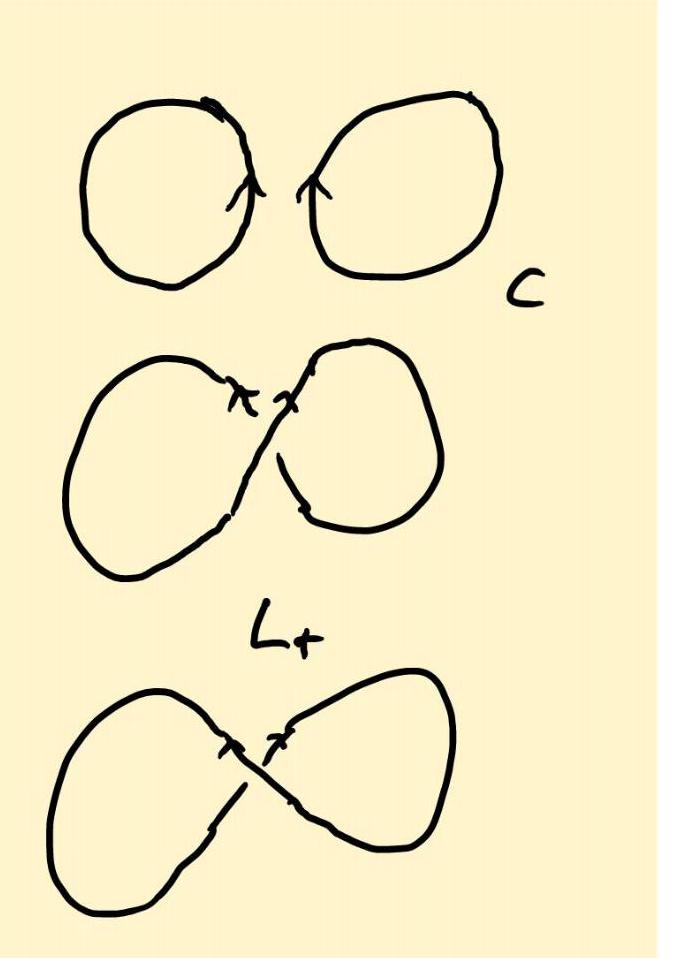 C
L+